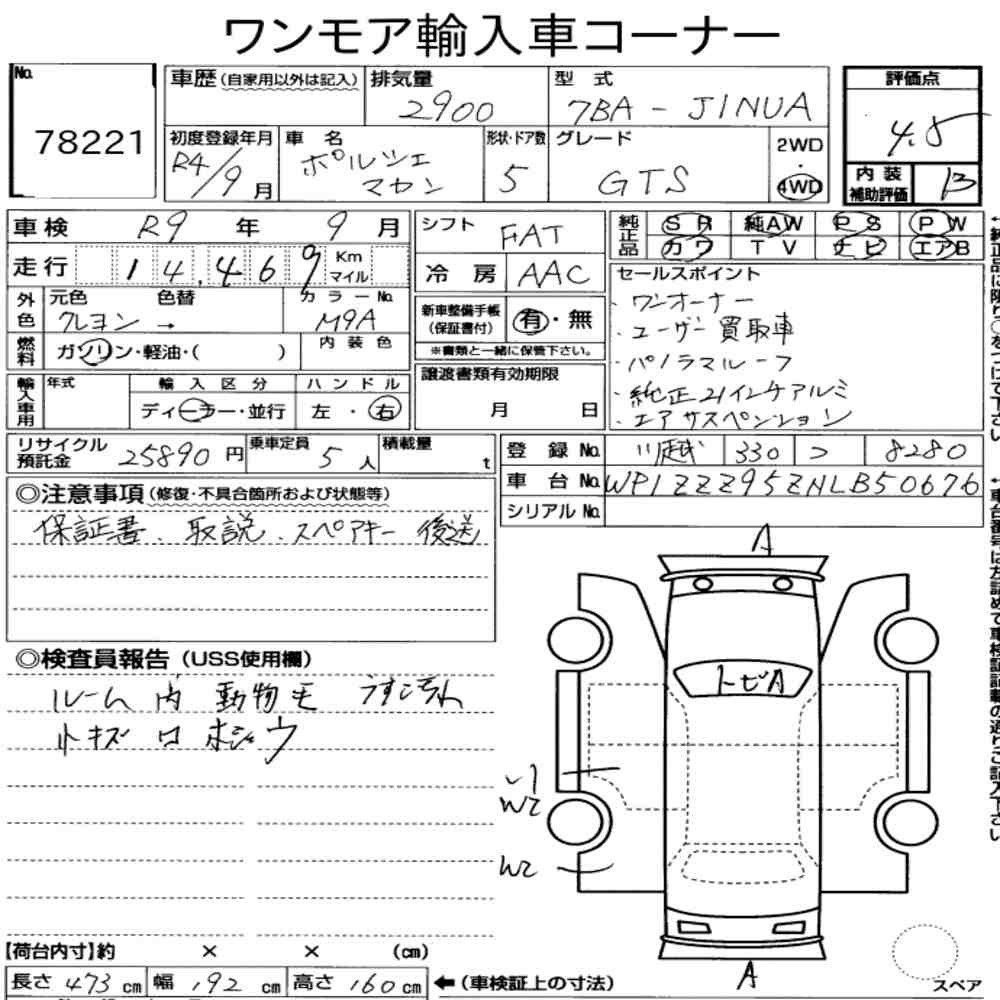 ワンモア輸入車コーナー
No. 78221
車歴 (自家用以外は記入)
排気量 2900
型式 7BA - J1NUA
評価点 4.5
初度登録年月 R4/9月
車名 ポルシェ マカン
形状・ドア数 5
グレード GTS
2WD・4WD
内装補助評価 B
車検 R9年 9月
シフト FAT
純正品 SR 純AW PS PW
カワ TV ナビ エアB
走行 14,469 Km マイル
冷房 AAC
セールスポイント
・ワンオーナー
・ユーザー買取車
・パノラマルーフ
・純正21インチアルミ
・エアサスペンション
外色 元色 クレヨン → 色替 カラーNo. M9A
新車整備手帳 (保証書付) 有・無
※書類と一緒に保管下さい。
燃料 ガソリン・軽油・( )
内装色
譲渡書類有効期限
月 日
輸入車用 年式
輸入区分 ディーラー・並行
ハンドル 左・右
リサイクル預託金 25890円
乗車定員 5人
積載量 t
登録No. 川越 330 つ 8280
車台No. WP1ZZZ95ZNLB50676
シリアルNo.
◎注意事項 (修復・不具合箇所および状態等)
保証書、取説、スペアキー 後送
◎検査員報告 (USS使用欄)
ルーム内 動物毛 うすい汚れ
小キズ 口 ホシュウ
A
トビA
W2
W2
A
スペア
【荷台内寸】約 × × (cm)
長さ 473cm 幅 192cm 高さ 160cm ←(車検証上の寸法)